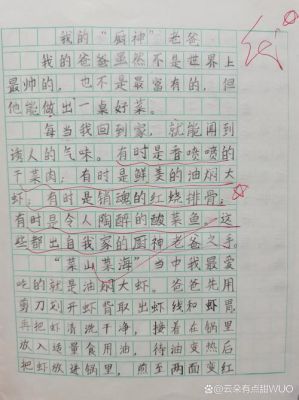 我的“厨神”老爸
我的爸爸虽然不是世界上
最帅的，也不是最富有的，但
他能做出一桌好菜。
每当我回到家，就能闻到
诱人的气味。有时是香喷喷的
干菜肉；有时是鲜美的油焖大
虾；有时是销魂的红烧排骨；
有时是令人陶醉的酸菜鱼。这
些都出自我家的厨神老爸之手。
“菜山菜海”当中我最爱
吃的就是油焖大虾。爸爸先用
剪刀划开虾背取出虾线和虾胃，
再把虾清洗干净，接着在锅里
放入适量食用油，待油变热后
把虾放进锅里，煎至两面变红
@云朵有点甜WUO